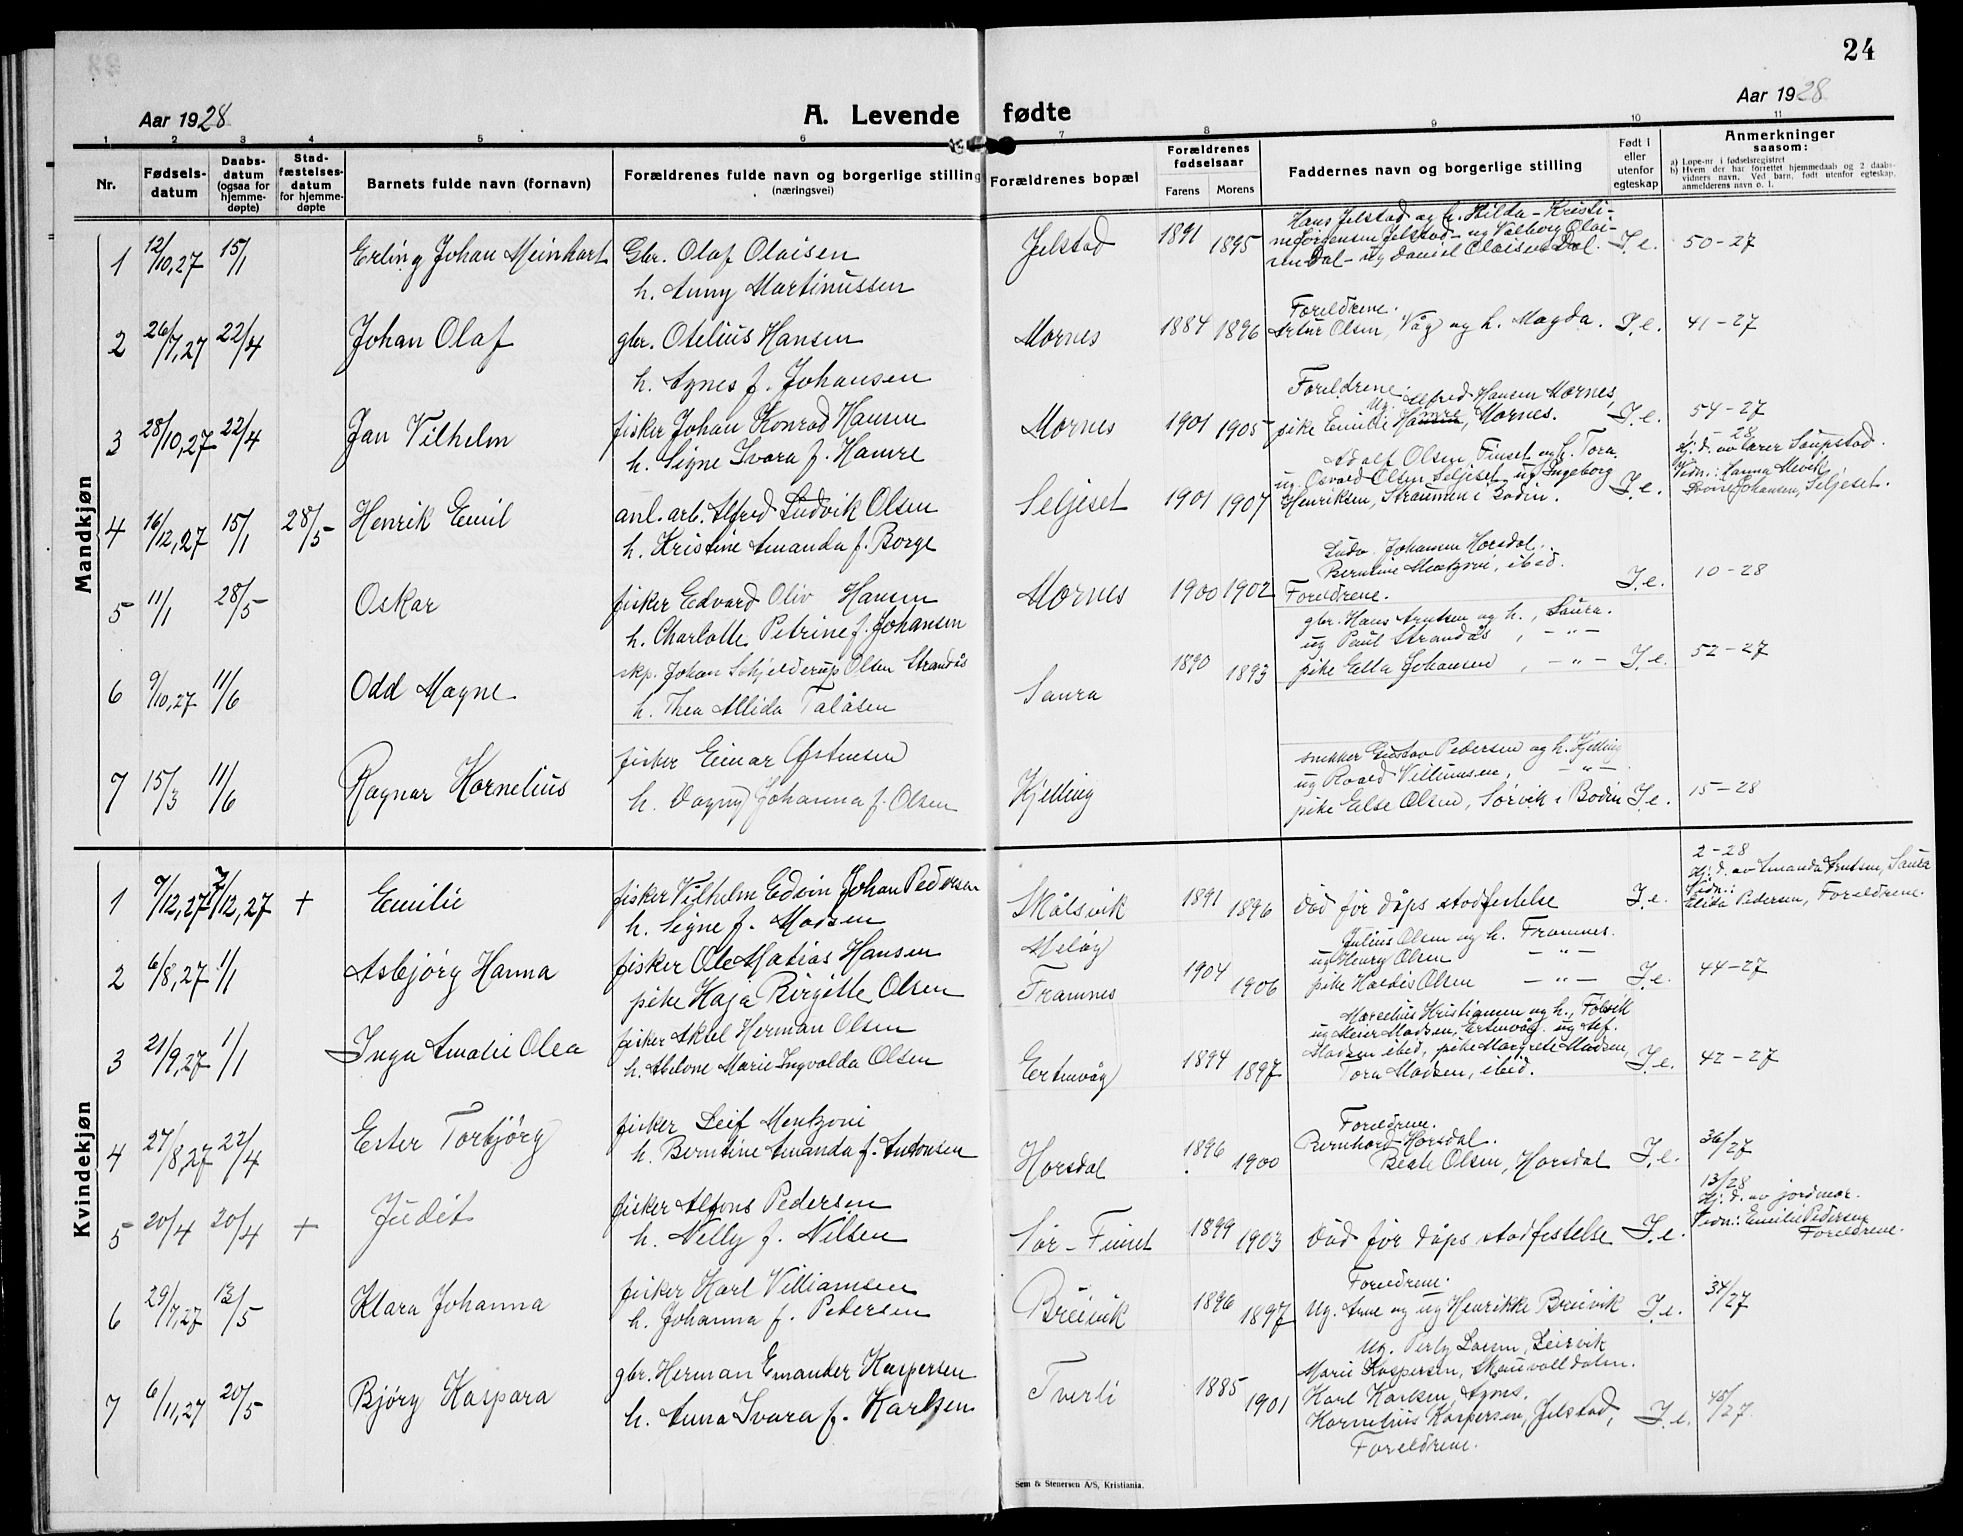 24
Aar 1928
A. Levende fødte
Aar 1928
1 2 3 4 5 6 7 8 9 10 11
Nr.
Fødsels-datum
Daabs-datum (ogsaa for hjemme-døpte)
Stad-fæstelses-datum for hjemme-døpte
Barnets fulde navn (fornavn)
Forældrenes fulde navn og borgerlige stilling (næringsvei)
Forældrenes bopæl
Forældrenes fødselsaar
Farens Morens
Faddernes navn og borgerlige stilling
Født i eller utenfor egteskap
Anmerkninger saasom:
a) Løpe-nr i fødselsregistret
b) Hvem der har forrettet hjemmedaab og 2 daabs-
vidners navn. Ved barn, født utenfor egteskap,
anmelderens navn o. l.
Mandkjøn
1 12/10,27 15/1 Erling Johan Meinhart Gbr. Olaf Olaisen
h. Anny Martinussen
Jelstad 1891 1895
Hans Jelstad og h. Hilda - Kristi-
ne Sörensen Jelstad - ug Valborg Olai-
sen Dal - ug Daniel Olaisen Dal. I.e. 50-27
2 26/7,27 22/4 Johan Olaf gbr. Otelius Hansen
h. Agnes f. Johansen
Mornes 1884 1896
Foreldrene.
Artur Olsen, Våg og h. Magda. I.e. 41-27
3 28/10,27 22/4 Jan Vilhelm fisker Johan Konrad Hansen
h. Signe Ivara f. Hamre
Mornes 1901 1905
Foreldrene.
Ug. Alfred Hansen Mornes,
pike Emilie Hamre, Mornes. I.e. 54-27
4 16/12,27 15/1 28/5 Henrik Emil anl. arb. Alfred Ludvik Olsen
h. Kristine Amanda f. Borge
Seljeset 1901 1907
Adolf Olsen Finset og h. Tora,
ug. Osvard Olsen Seljeset ug. Ingeborg
Henriksen, Straumen i Bodin. I.e.
1-28
Hj. d. av lærer Saupstad.
Vidn.: Hanna Mevik
Lovise Johansen, Seljeset.
5 11/1 28/5 Oskar fisker Edvard Oliv Hansen
h. Charlotte Petrine f. Johansen
Mornes 1900 1902
Ludv. Johansen Horsdal.
Berntine Mentzoni, ibid.
Foreldrene. I.e. 10-28
6 9/10,27 11/6 Odd Magne skp. Johan Schjelderup Olsen Strandås
h. Thea Allida Talåsen
Saura 1890 1893
gbr. Hans Arntsen og h., Saura.
ug Paul Strandås, - " -
pike Ella Johansen, - " - I.e. 52-27
7 15/3 11/6 Ragnar Kornelius fisker Einar Östensen
h. Dagny Johanna f. Olsen
Kjelling
snekker Gustav Pedersen og h. Kjelling
ug Roald Villumsen, - " -
pike Else Olsen, Sörvik i Bodin I.e. 15-28
Kvindekjøn
1 7/12,27 7/12,27 + Emilie fisker Vilhelm Edvin Johan Pedersen
h. Signe f. Madsen
Skålsvik 1891 1896 Död för dåps stadfestelse I.e.
2-28
Hj. d. av Amanda Arntsen, Saura
Vidn.:
Elida Pedersen, Foreldrene.
2 6/8,27 1/1 Asbjörg Hanna fisker Ole Matias Hansen
pike Haja Birgitte Olsen
Melöy
Framnes 1904 1906
Julius Olsen og h. Framnes.
ug Henry Olsen - " -
pike Haldis Olsen - " - I.e. 44-27
3 21/9,27 1/1 Inga Amalie Olea fisker Aksel Herman Olsen
h. Abelone Marie Ingvalda Olsen
Ertenvåg 1894 1897
Marselius Kristiansen og h., Folvik
ug Meier Madsen, Ertenvåg. ug Alf.
Madsen ibid, pike Margrete Madsen,
Tora Madsen, ibid. I.e. 42-27
4 27/8,27 22/4 Ester Torbjörg fisker Leif Mentzoni
h. Berntine Amanda f. Antonsen
Horsdal 1896 1900
Foreldrene.
Bernhard Horsdal.
Beate Olsen, Horsdal I.e. 36/27
5 20/4 20/4 + Judit fisker Alfons Pedersen
h. Nelly f. Nilsen
Sör-Finset 1899 1903 Död för dåps stadfestelse I.e.
13/28
Hj. d. av jordmor.
Vidn: Emilie Pedersen,
Foreldrene.
6 29/7,27 13/5 Klara Johanna fisker Karl Villiamsen
h. Johanna f. Pedersen
Breivik 1896 1897
Foreldrene.
Ug. Arne og ug Henrikke Breivik I.e. 34/27
7 6/11,27 20/5 Bjørg Kaspara gbr. Herman Emander Kaspersen
h. Anna Ivara f. Karlsen
Tverli 1885 1901
Ug. Perly Larsen, Leirvik
Marie Kaspersen, Skauvolldalen.
Karl Karlsen, Agnes.
Kornelius Kaspersen, Jelstad,
Foreldrene. I.e. 48/27
Sem & Stenersen A/S, Kristiania.